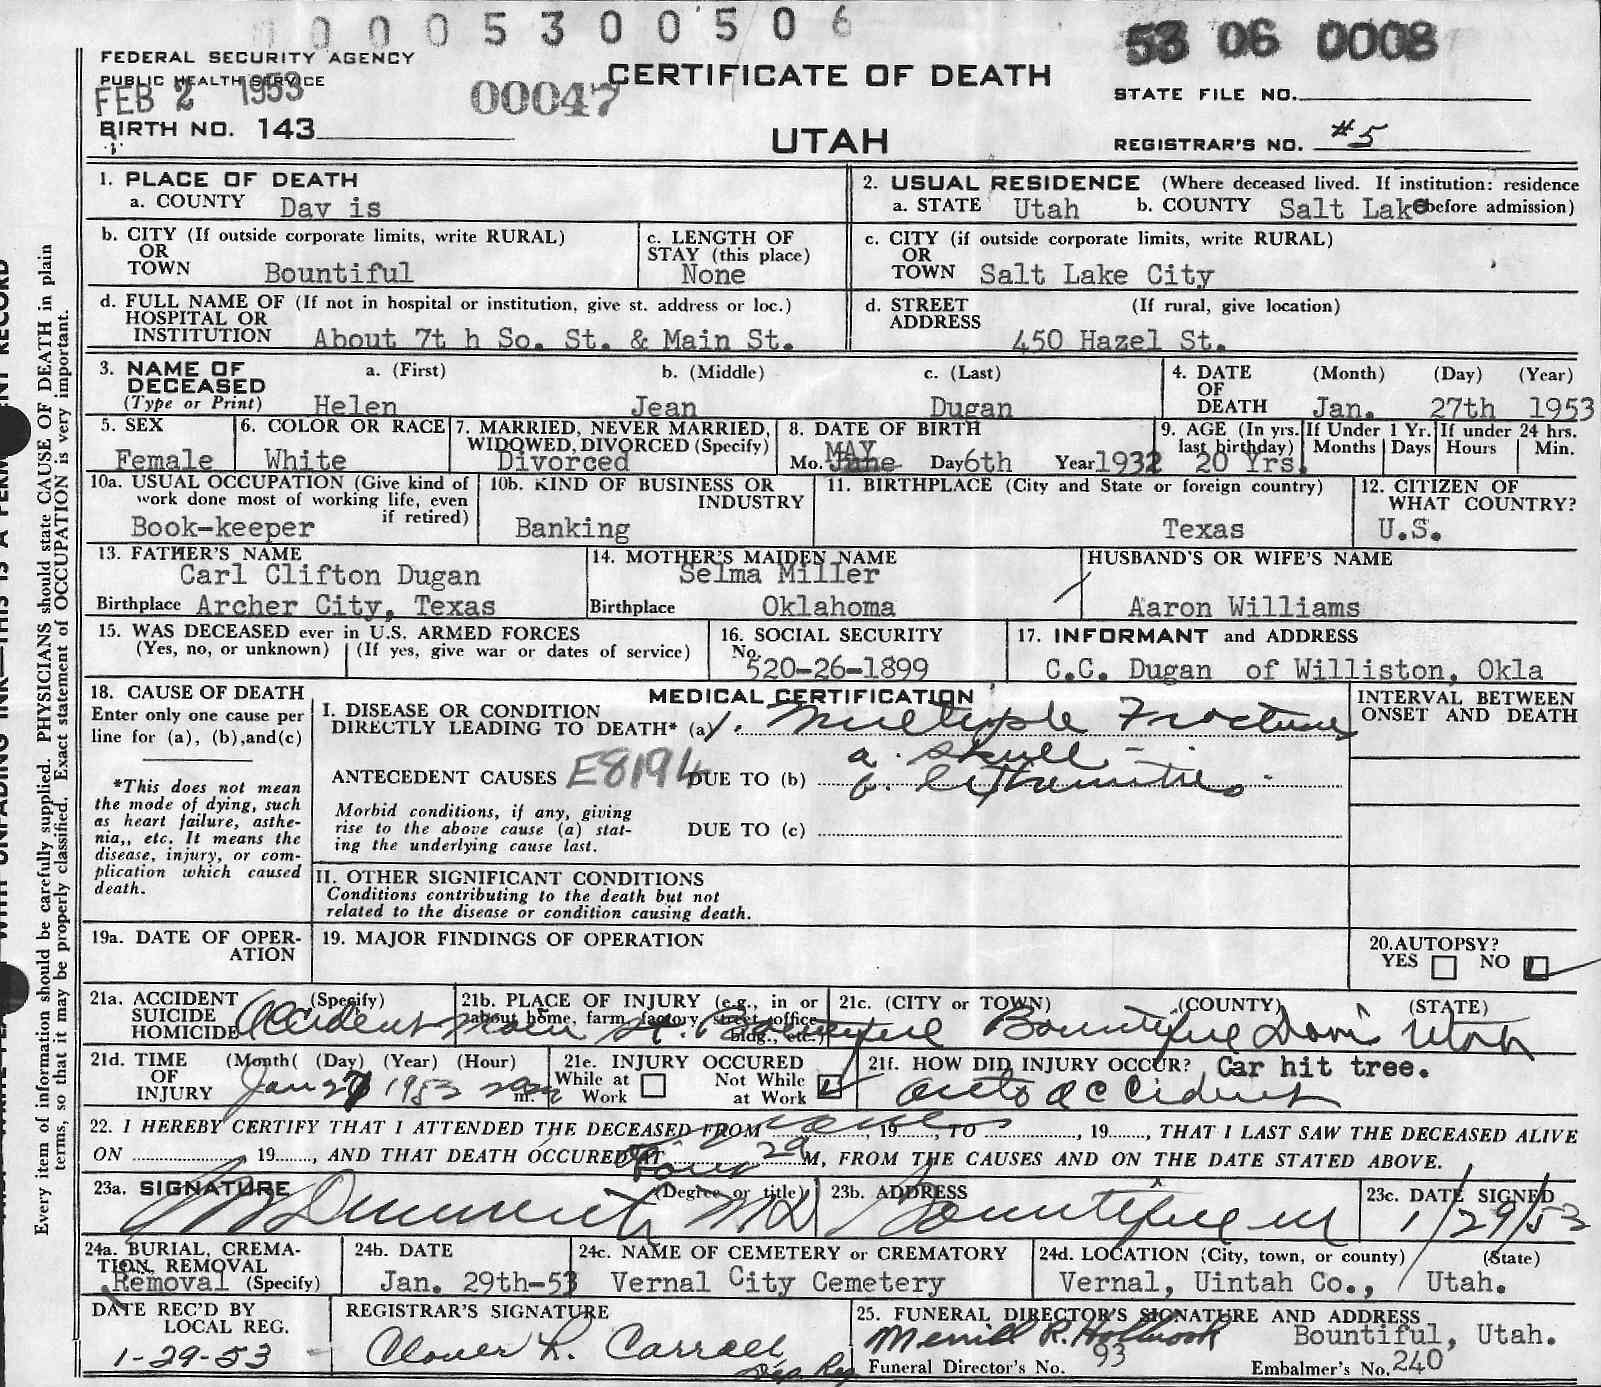 0 0 0 0 5 3 0 0 5 0 6
53 06 0008
FEDERAL SECURITY AGENCY
PUBLIC HEALTH SERVICE
FEB 2 1953
00047
CERTIFICATE OF DEATH
STATE FILE NO.
BIRTH NO. 143
UTAH
REGISTRAR'S NO. #5
1. PLACE OF DEATH
a. COUNTY Dav is
2. USUAL RESIDENCE (Where deceased lived. If institution: residence
a. STATE Utah b. COUNTY Salt Lake before admission)
b. CITY (If outside corporate limits, write RURAL)
OR
TOWN Bountiful
c. LENGTH OF
STAY (this place)
None
c. CITY (if outside corporate limits, write RURAL)
OR
TOWN Salt Lake City
d. FULL NAME OF (If not in hospital or institution, give st. address or loc.)
HOSPITAL OR
INSTITUTION About 7t h So. St. & Main St.
d. STREET (If rural, give location)
ADDRESS
450 Hazel St.
3. NAME OF a. (First) b. (Middle) c. (Last)
DECEASED
(Type or Print) Helen Jean Dugan
4. DATE (Month) (Day) (Year)
OF
DEATH Jan. 27th 1953
5. SEX
Female
6. COLOR OR RACE
White
7. MARRIED, NEVER MARRIED,
WIDOWED, DIVORCED (Specify)
Divorced
8. DATE OF BIRTH
MAY
Mo. June Day 6th Year 1932
9. AGE (In yrs. If Under 1 Yr. If under 24 hrs.
last birthday) Months Days Hours Min.
20 Yrs.
10a. USUAL OCCUPATION (Give kind of
work done most of working life, even
if retired)
Book-keeper
10b. KIND OF BUSINESS OR
INDUSTRY
Banking
11. BIRTHPLACE (City and State or foreign country)
Texas
12. CITIZEN OF
WHAT COUNTRY?
U.S.
13. FATHER'S NAME
Carl Clifton Dugan
Birthplace Archer City, Texas
14. MOTHER'S MAIDEN NAME
Selma Miller
Birthplace Oklahoma
HUSBAND'S OR WIFE'S NAME
Aaron Williams
15. WAS DECEASED ever in U.S. ARMED FORCES
(Yes, no, or unknown) (If yes, give war or dates of service)
16. SOCIAL SECURITY
No.
520-26-1899
17. INFORMANT and ADDRESS
C.C. Dugan of Williston, Okla
18. CAUSE OF DEATH
Enter only one cause per
line for (a), (b),and(c)
*This does not mean
the mode of dying, such
as heart failure, asthe-
nia,, etc. It means the
disease, injury, or com-
plication which caused
death.
MEDICAL CERTIFICATION
I. DISEASE OR CONDITION
DIRECTLY LEADING TO DEATH* (a) 1. Multiple Fracture
a. skull
ANTECEDENT CAUSES E8194 DUE TO (b) b. extremities
Morbid conditions, if any, giving
rise to the above cause (a) stat-
ing the underlying cause last.
DUE TO (c)
II. OTHER SIGNIFICANT CONDITIONS
Conditions contributing to the death but not
related to the disease or condition causing death.
INTERVAL BETWEEN
ONSET AND DEATH
19a. DATE OF OPER-
ATION
19. MAJOR FINDINGS OF OPERATION
20. AUTOPSY?
YES NO
21a. ACCIDENT (Specify)
SUICIDE
HOMICIDE Accident
21b. PLACE OF INJURY (e.g., in or
about home, farm, factory, street, office
bldg., etc.)
Main St. Bountiful
21c. (CITY or TOWN) (COUNTY) (STATE)
Bountiful Davis Utah
21d. TIME (Month( (Day) (Year) (Hour)
OF
INJURY Jan 27 1953 2am m.
21e. INJURY OCCURED
While at Work Not While at Work
21f. HOW DID INJURY OCCUR? Car hit tree.
auto accident
22. I HEREBY CERTIFY THAT I ATTENDED THE DECEASED FROM , 19 , TO , 19 , THAT I LAST SAW THE DECEASED ALIVE
ON , 19 , AND THAT DEATH OCCURED AT M, FROM THE CAUSES AND ON THE DATE STATED ABOVE.
23a. SIGNATURE (Degree or title)
MD
23b. ADDRESS
Bountiful
23c. DATE SIGNED
1/29/53
24a. BURIAL, CREMA-
TION, REMOVAL
Removal (Specify)
24b. DATE
Jan. 29th-53
24c. NAME OF CEMETERY or CREMATORY
Vernal City Cemetery
24d. LOCATION (City, town, or county) (State)
Vernal, Uintah Co., Utah.
DATE REC'D BY
LOCAL REG.
1-29-53
REGISTRAR'S SIGNATURE
Clover L. Carroll
Dep. Reg
25. FUNERAL DIRECTOR'S SIGNATURE AND ADDRESS
Merrill R. Holbrook Bountiful, Utah.
Funeral Director's No. 93 Embalmer's No. 240
Every item of information should be carefully supplied. PHYSICIANS should state CAUSE OF DEATH in plain
terms, so that it may be properly classified. Exact statement of OCCUPATION is very important.